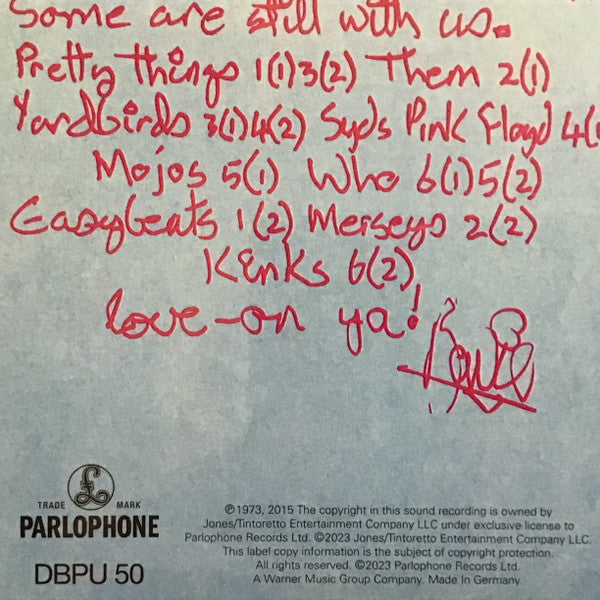 Some are still with us.
Pretty things 1(1)3(2) Them 2(1)
Yardbirds 3(1)4(2) Syds Pink Floyd 4(1
Mojos 5(1) Who 6(1)5(2)
Easybeats 1(2) Merseys 2(2)
Kinks 6(2)
love-on ya!
Bowie
£
TRADE MARK
PARLOPHONE
DBPU 50
℗1973, 2015 The copyright in this sound recording is owned by
Jones/Tintoretto Entertainment Company LLC under exclusive license to
Parlophone Records Ltd. ©2023 Jones/Tintoretto Entertainment Company LLC.
This label copy information is the subject of copyright protection.
All rights reserved. ©2023 Parlophone Records Ltd.
A Warner Music Group Company. Made in Germany